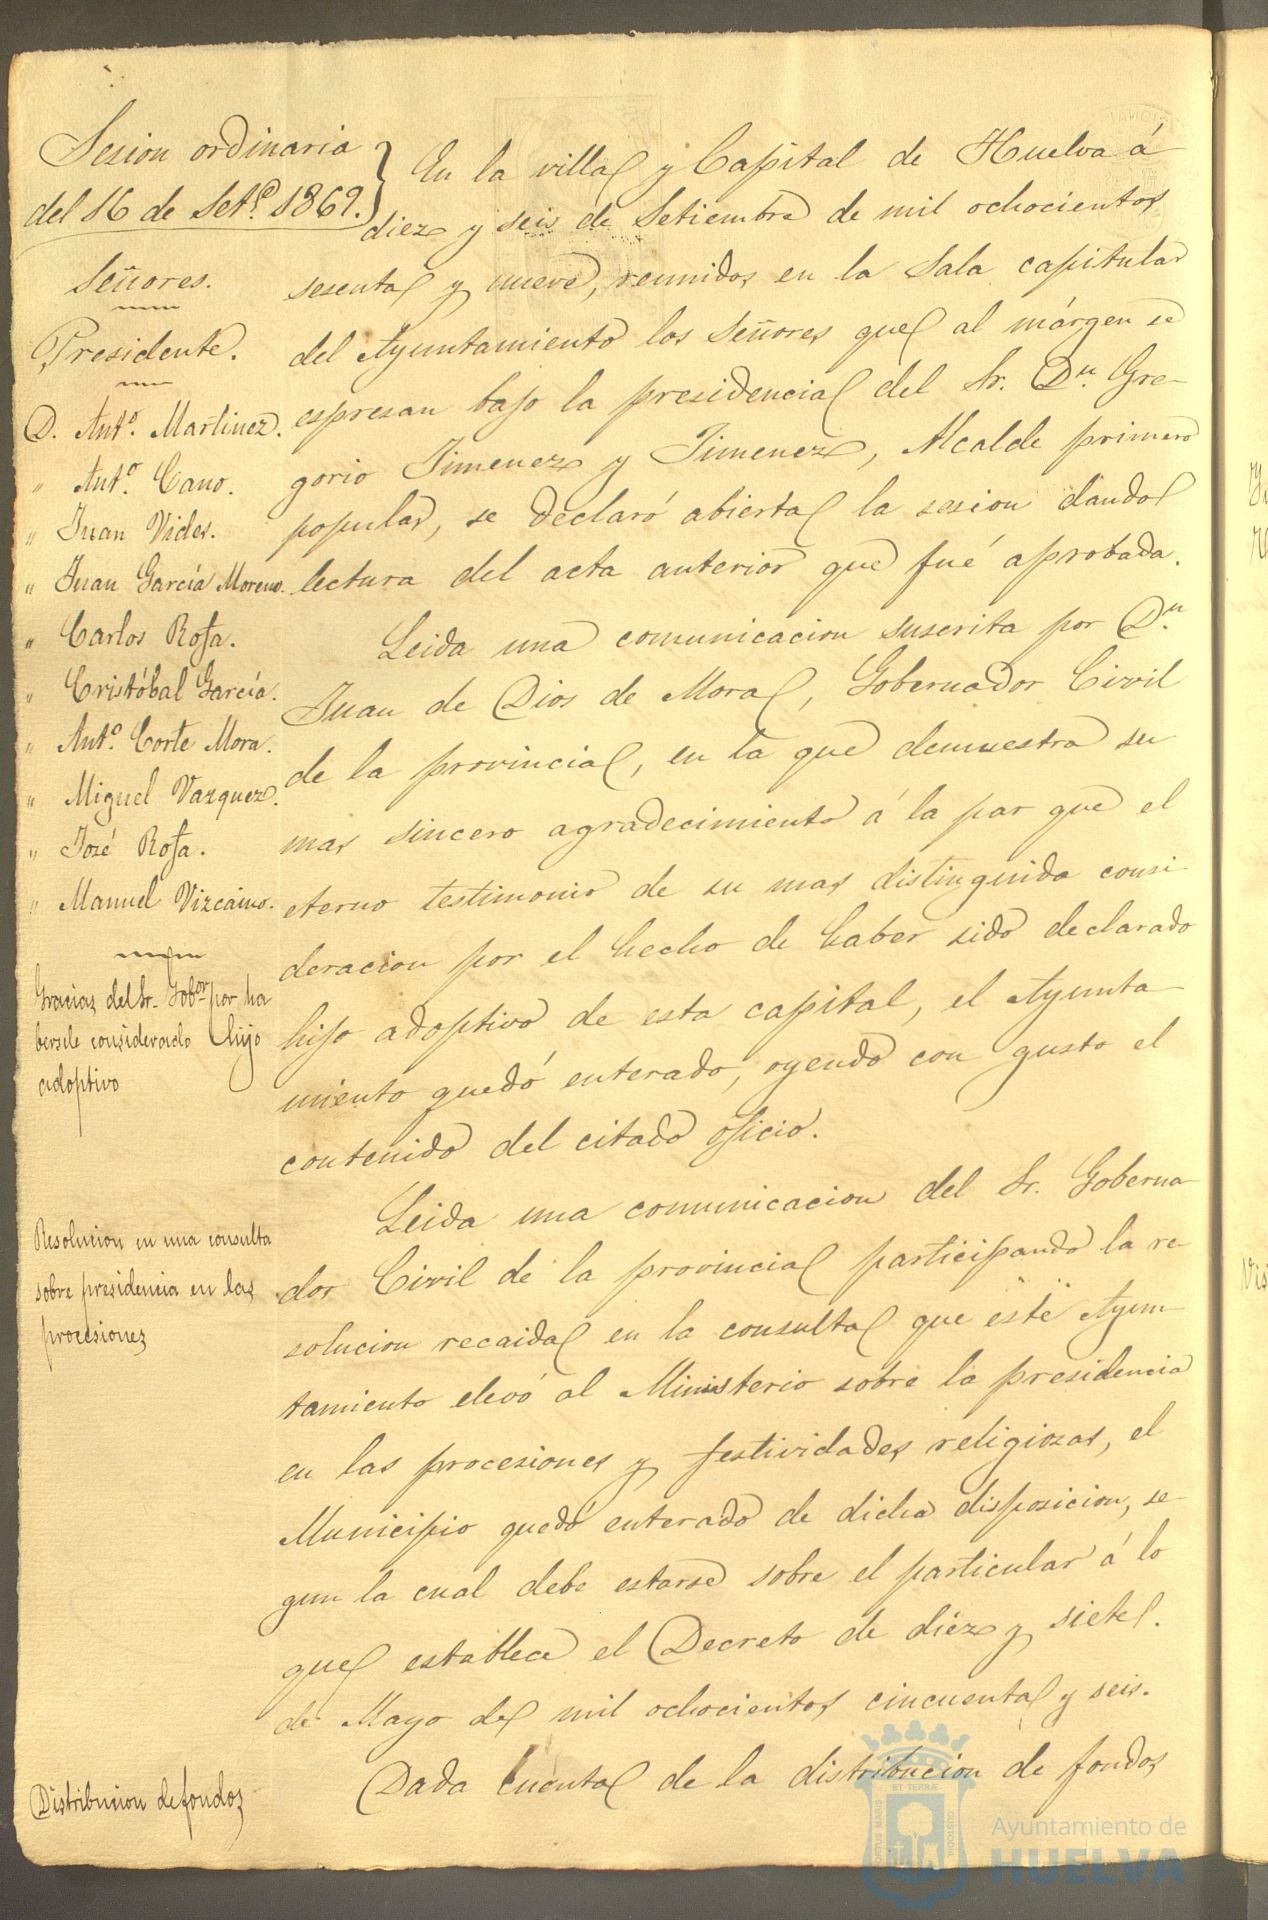 Sesion ordinaria
del 16 de Set.e 1869.
Señores.
Presidente.
D. Ant.o Martinez.
" Ant.o Cano.
" Juan Vides.
" Juan García Moreno.
" Carlos Rofa.
" Cristóbal García.
" Ant.o Corte Mora.
" Miguel Vazquez.
" José Rofa.
" Manuel Vizcaino.
Gracias del Sr. Gob.or por ha
bersele considerado hijo
adoptivo
Resolucion en una consulta
sobre presidencia en las
procesiones
Distribucion de fondos
En la villa y Capital de Huelva á
diez y seis de Setiembre de mil ochocientos
sesenta y nueve, reunidos en la Sala capitular
del Ayuntamiento los Señores que al márgen se
espresan bajo la presidencia del Sr. D.n Gre-
gorio Jimenez y Jimenez, Alcalde primero
popular, se declaró abierta la sesion dando
lectura del acta anterior que fué aprobada.
Leida una comunicacion suscrita por D.n
Juan de Dios de Mora, Gobernador Civil
de la provincia, en la que demuestra su
mas sincero agradecimiento á la par que el
eterno testimonio de su mas distinguida consi-
deracion por el hecho de haber sido declarado
hijo adoptivo de esta capital, el Ayunta-
miento quedó enterado, oyendo con gusto el
contenido del citado oficio.
Leida una comunicacion del Sr. Goberna-
dor Civil de la provincia participando la re-
solucion recaida en la consulta que este Ayun-
tamiento elevó al Ministerio sobre la presidencia
en las procesiones y festividades religiosas, el
Municipio quedó enterado de dicha disposicion, se-
gun la cual debe estarse sobre el particular á lo
que establece el Decreto de diez y siete
de Mayo de mil ochocientos cincuenta y seis.
Dada cuenta de la distribucion de fondos
PORTUS MARIS ET TERRÆ CUSTODIA
Ayuntamiento de
HUELVA